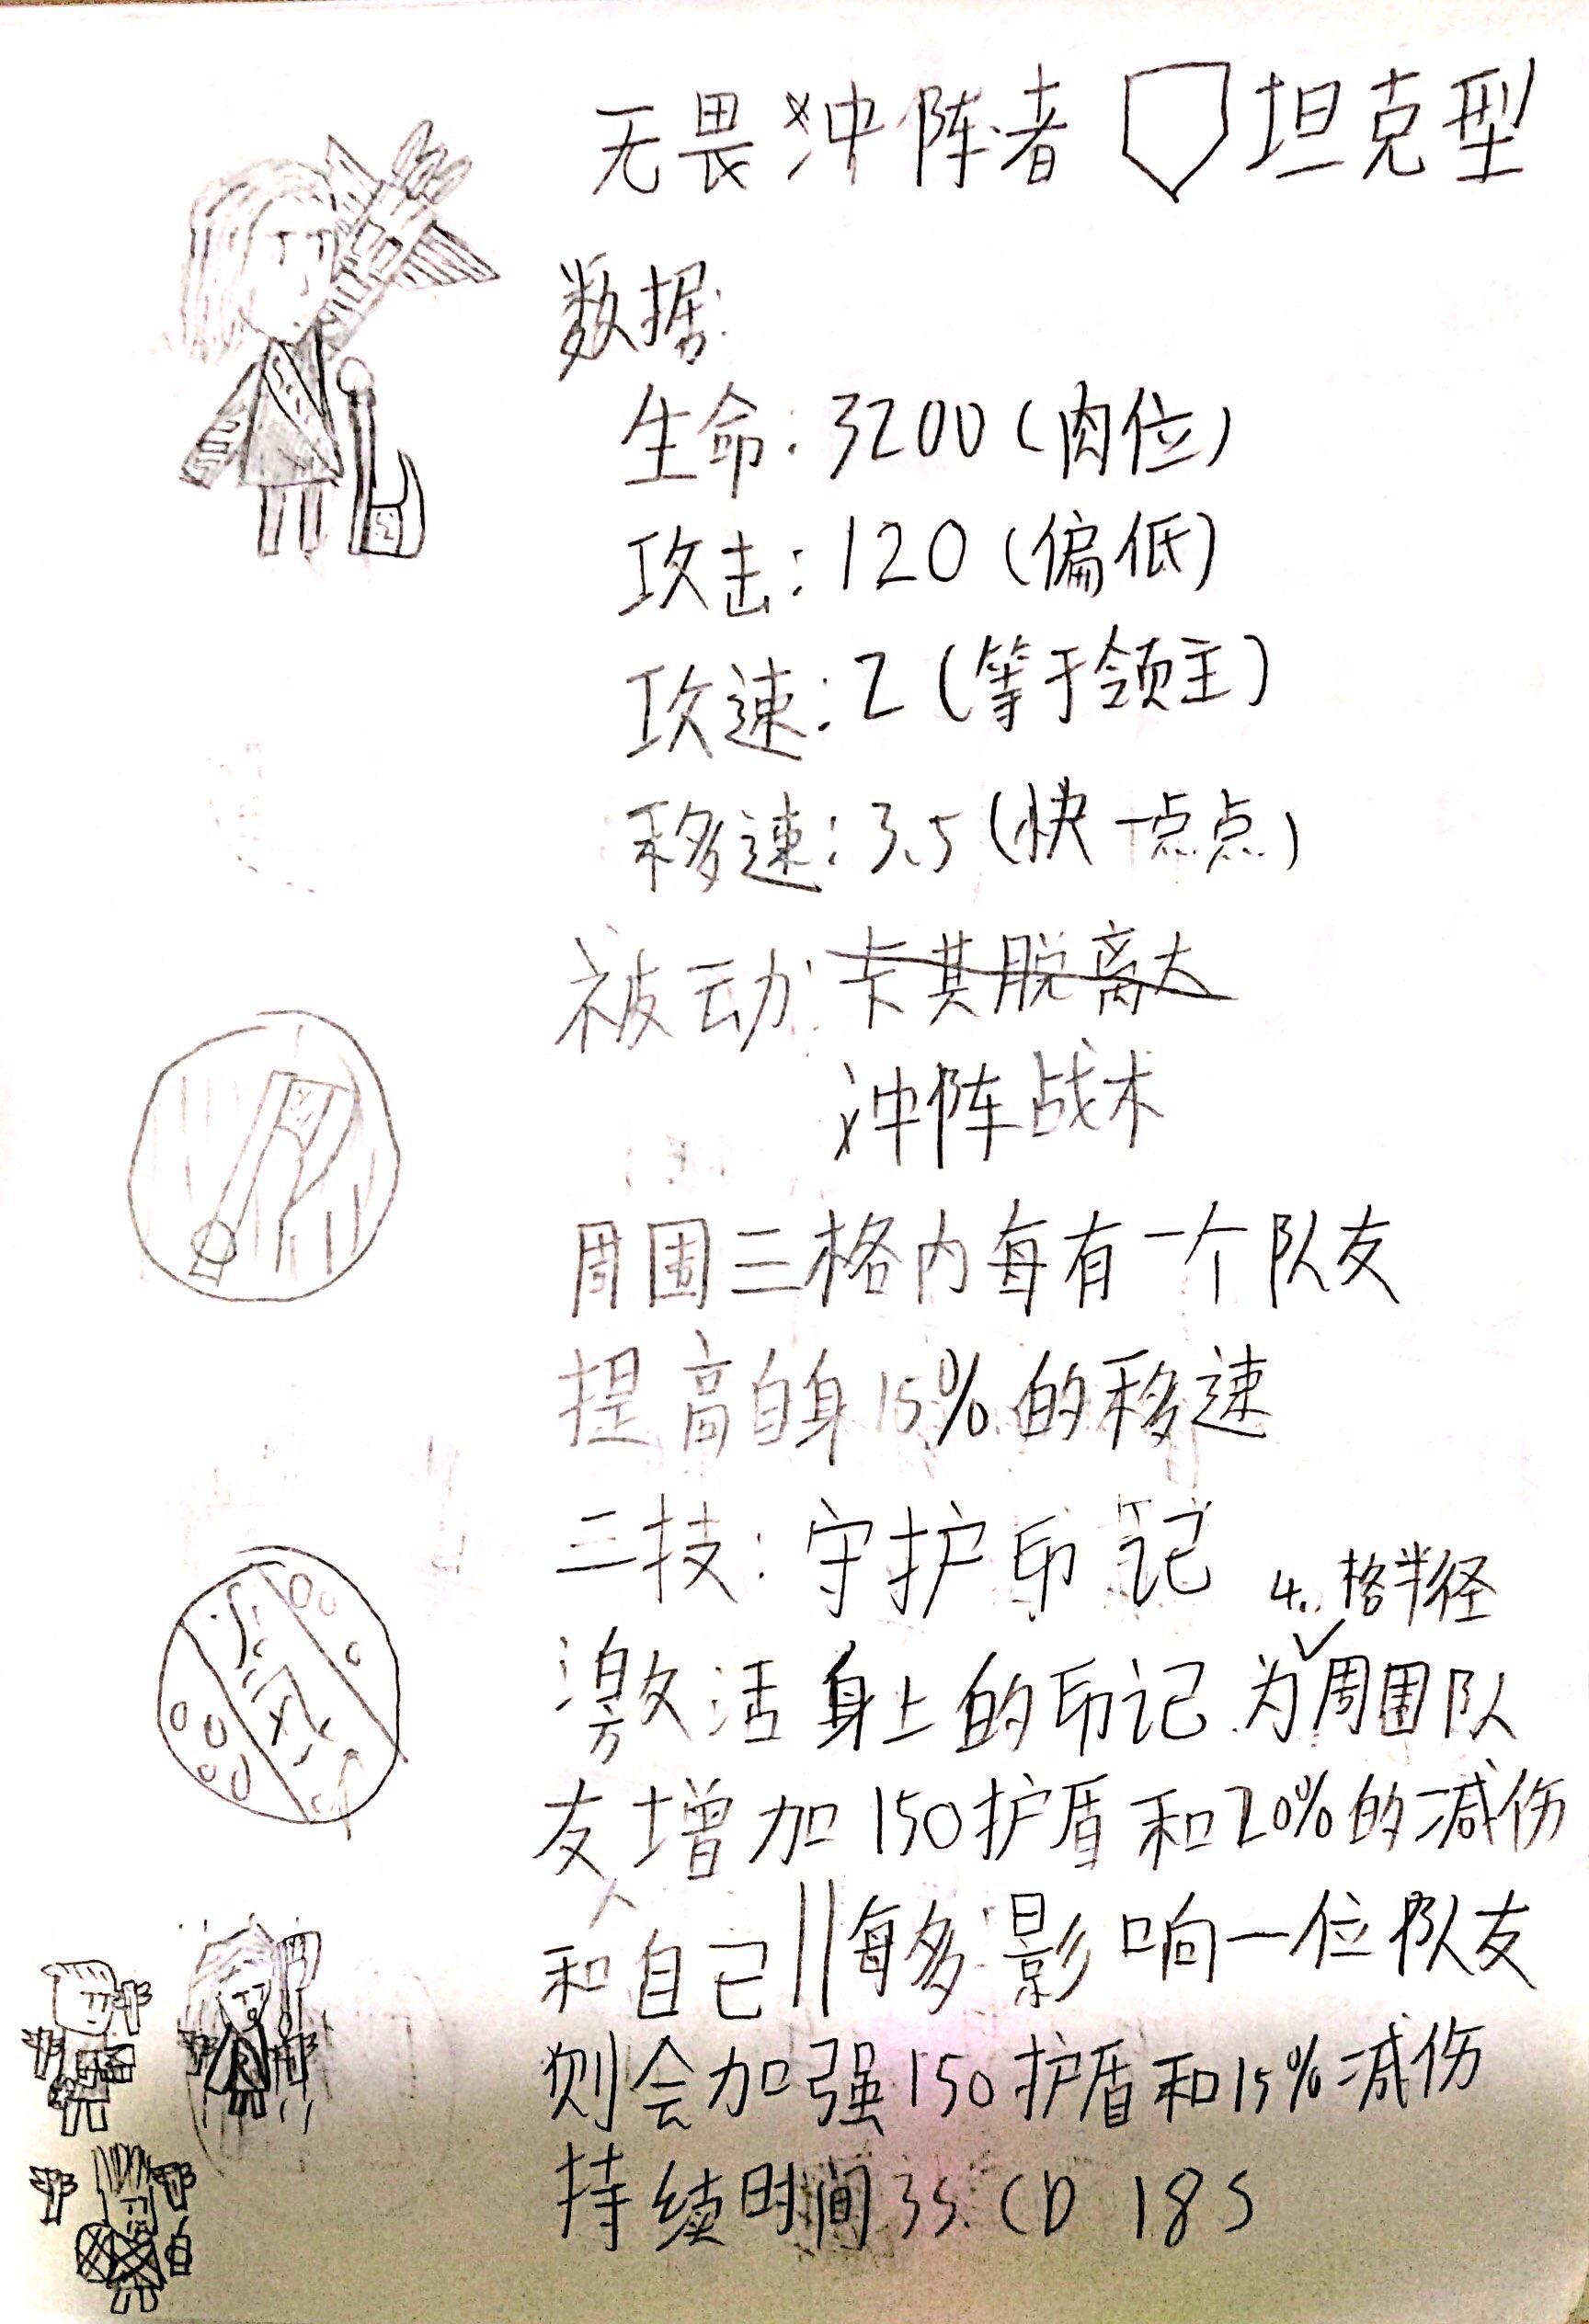 无畏冲阵者 坦克型
数据:
生命:3200(肉位)
攻击:120(偏低)
攻速:2(等于领主)
移速:3.5(快一点点)
被动:卡其脱离太
冲阵战术
周围三格内每有一个队友
提高自身15%的移速
三技:守护印记
4.格半径
激活身上的印记为周围队
友增加150护盾和20%的减伤
和自己||每多影响一位队友
则会加强150护盾和15%减伤
持续时间3s.CD 18s